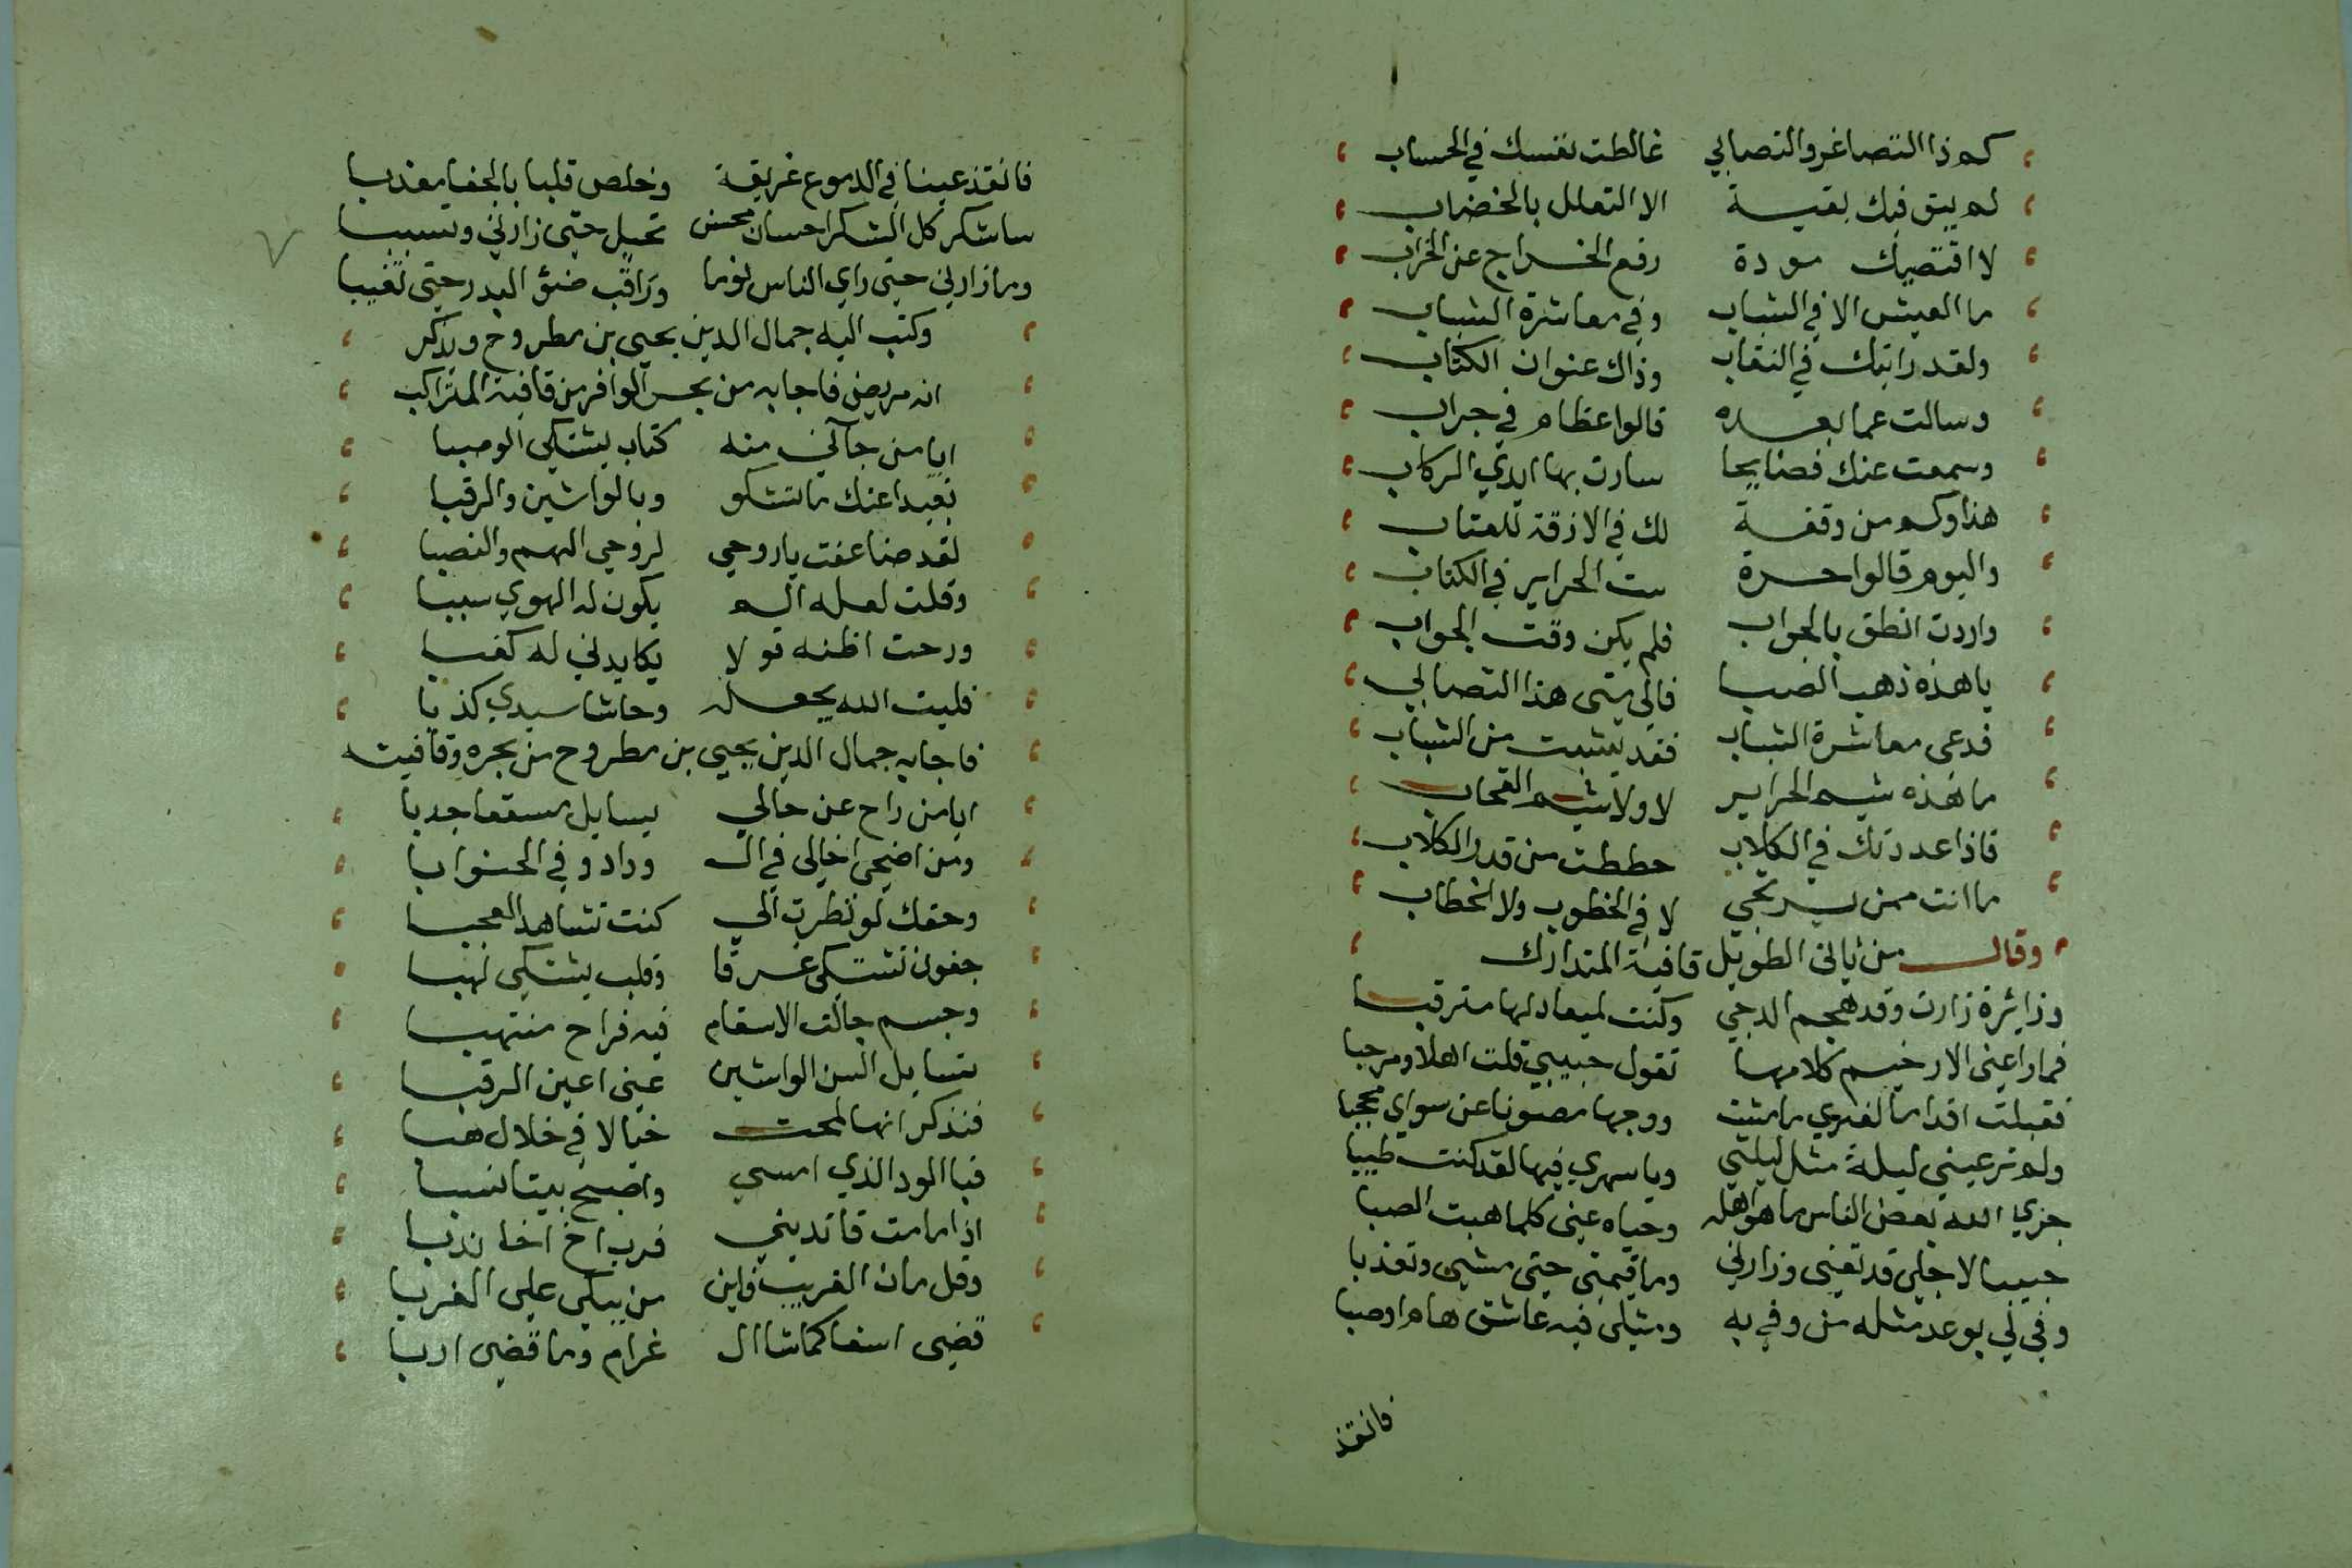 كم ذا التصاغر والتصابي غالطت نفسك في الحساب
لم يبق فيك بقية الا التعلل بالخضاب
لا اقتضيك مودة رفع الخراج عن الخراب
ما العيش الا في الشباب وفي معاشرة الشباب
ولقد رايتك في النقاب وذاك عنوان الكتاب
وسالت عما بعده قالوا عظام في جراب
وسمعت عنك فضايحا سارت بها ايدي الركاب
هذا وكم من وقفة لك في الازقة للعتاب
واليوم قالوا حرة ست الحراير في الكتاب
واردت انطق بالجواب فلم يكن وقت الجواب
يا هذه ذهب الصبا فالي متى هذا التصابي
فدعي معاشرة الشباب فقد يئست من الشباب
ما هذه شيم الحراير لا ولا شيم القحاب
فاذا عددتك في الكلاب حططت من قدر الكلاب
ما انت ممن يرتجي لا في الخطوب ولا الخطاب
وقال من ثاني الطويل قافية المتدارك
وزائرة زارت وقد هجم الدجي وكنت لميعاد لها مترقبا
فما راعني الا رخيم كلامها تقول حبيبي قلت اهلا ومرحبا
فقبلت اقداما لغيري ما مشت ووجها مصونا عن سواي محجبا
ولم تر عيني ليلة مثل ليلتي ويا سهري فيها لقد كنت طيبا
جزي الله بعض الناس ما هو اهله وحياه عني كلما هبت الصبا
حبيبا لاجلي قد تعنى وزارني وما قيمتي حتى مشى وتعذبا
وفي لي بوعد مثله من وفي به ومثلي فيه عاشق هام او صبا
فانقذ
فانقذ عينا في الدموع غريقة وخلص قلبا بالجفا معذبا
ساشكر كل الشكر احسان محسن تحيل حتى زارني وتسببا
وما زارني حتى راي الناس نوما وراقب ضؤ البدر حتى تغيبا
وكتب اليه جمال الدين يحيي بن مطروح وذكر
انه مريض فاجابه من بحر الوافر من قافية المتراكب
ايا من جآني منه كتاب يشتكي الوصبا
بعيدا عنك ما تشكو وبالواشين والرقبا
لقد ضاعفت يا روحي لروحي الهم والنصبا
وقلت لعله الم يكون له الهوي سببا
ورحت اظنه قولا يكايدني له كعبا
فليت الله يجعله وحاشا سيدي كذبا
فاجابه جمال الدين يحيي بن مطروح من بحره وقافيته
ايا من راح عن حالي يسايل مسقفا جدبا
ومن اضحى اخالي في ال وداد وفي الحنو ابا
وحقك لو نظرت الي كنت تشاهد العجبا
جفون تشتكي غرقا وقلب يشتكي لهبا
وجسم جالت الاسقام فيه فراح منتهبا
تسايل السن الواشين عني اعين الرقبا
فتذكر انها لمحت خيالا في خلال هبا
فيا الود الذي امسي واصبح بيننا نسبا
اذا ما مت فاندبني فرب اخ اخا ندبا
وقل مات الغريب فاين من يبكي علي الغربا
قضي اسفا كما شا ال غرام وما قضي اربا